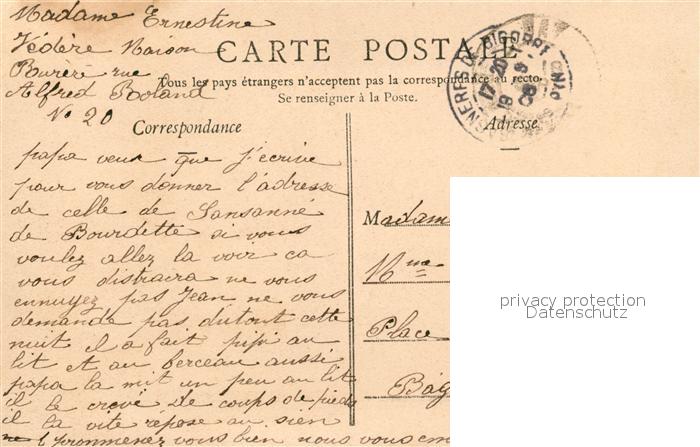 Madame Ernestine
Védère Maison
Burère rue
Alfred Roland
No 20
CARTE POSTALE
Tous les pays étrangers n'acceptent pas la correspondance au recto
Se renseigner à la Poste.
BIGORRE
17 20
19 9
08
Correspondance
Adresse
papa veux que j'écrive
pour vous donner l'adresse
de celle de Sansanné
de Bourdette si vous
voulez allez la voir ca
vous distraira ne vous
ennuyez pas Jean ne vous
demande pas dutout cette
nuit il a fait pipi au
lit et au berceau aussi
papa la mit un peu au lit
il le crevé de coups de pieds
il la vite répose au sien
promenez vous bien nous vous em
Madam
Mme
Place
Bag
privacy protection
Datenschutz